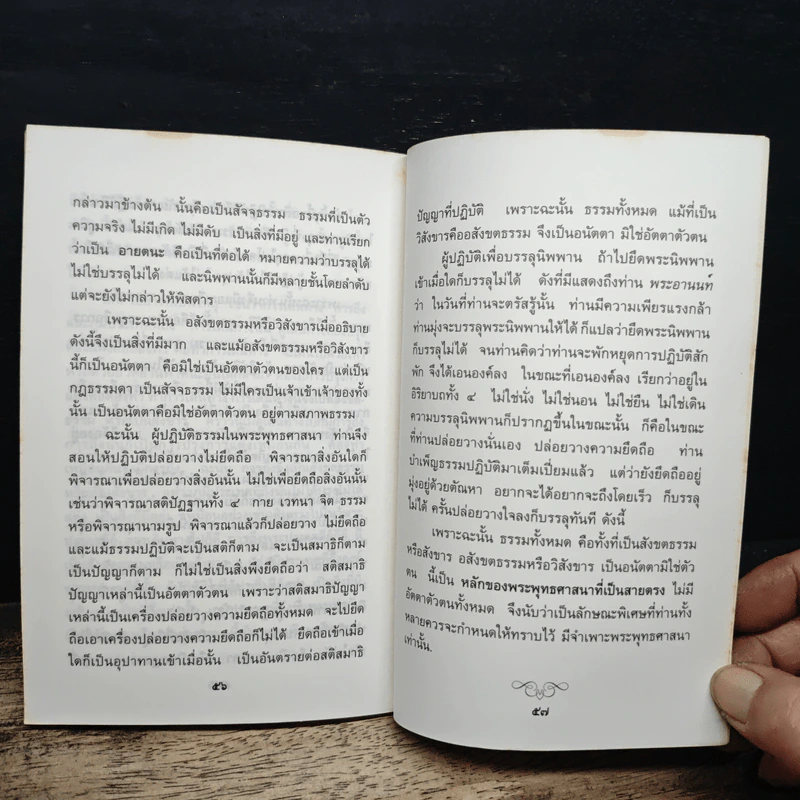 กล่าวมาข้างต้น นั้นคือเป็นสัจจธรรม ธรรมที่เป็นตัว
ความจริง ไม่มีเกิด ไม่มีดับ เป็นสิ่งที่มีอยู่ และท่านเรียก
ว่าเป็น อายตนะ คือเป็นที่ต่อได้ หมายความว่าบรรลุได้
ไม่ใช่บรรลุไม่ได้ และนิพพานนั้นก็มีหลายชั้นโดยลำดับ
แต่จะยังไม่กล่าวให้พิสดาร
เพราะฉะนั้น อสังขตธรรมหรือวิสังขารเมื่ออธิบาย
ดังนี้จึงเป็นสิ่งที่มีมาก และแม้อสังขตธรรมหรือวิสังขาร
นี้ก็เป็นอนัตตา คือมิใช่เป็นอัตตาตัวตนของใคร แต่เป็น
กฎธรรมดา เป็นสัจจธรรม ไม่มีใครเป็นเจ้าเข้าเจ้าของทั้ง
นั้น เป็นอนัตตาคือมิใช่อัตตาตัวตน อยู่ตามสภาพธรรม
ฉะนั้น ผู้ปฏิบัติธรรมในพระพุทธศาสนา ท่านจึง
สอนให้ปฏิบัติปล่อยวางไม่ยึดถือ พิจารณาสิ่งอันใดก็
พิจารณาเพื่อปล่อยวางสิ่งอันนั้น ไม่ใช่เพื่อยึดถือสิ่งอันนั้น
เช่นว่าพิจารณาสติปัฏฐานทั้ง ๔ กาย เวทนา จิต ธรรม
หรือพิจารณานามรูป พิจารณาแล้วก็ปล่อยวาง ไม่ยึดถือ
และแม้ธรรมปฏิบัติจะเป็นสติก็ตาม จะเป็นสมาธิก็ตาม
เป็นปัญญาก็ตาม ก็ไม่ใช่เป็นสิ่งพึงยึดถือว่า สติสมาธิ
ปัญญาเหล่านี้เป็นอัตตาตัวตน เพราะว่าสติสมาธิปัญญา
เหล่านี้เป็นเครื่องปล่อยวางความยึดถือทั้งหมด จะไปยึด
ถือเอาเครื่องปล่อยวางความยึดถือก็ไม่ได้ ยึดถือเข้าเมื่อ
ใดก็เป็นอุปาทานเข้าเมื่อนั้น เป็นอันตรายต่อสติสมาธิ
๕๖
ปัญญาที่ปฏิบัติ เพราะฉะนั้น ธรรมทั้งหมด แม้ที่เป็น
วิสังขารคืออสังขตธรรม จึงเป็นอนัตตา มิใช่อัตตาตัวตน
ผู้ปฏิบัติเพื่อบรรลุนิพพาน ถ้าไปยึดพระนิพพาน
เข้าเมื่อใดก็บรรลุไม่ได้ ดังที่มีแสดงถึงท่าน พระอานนท์
ว่า ในวันที่ท่านจะตรัสรู้นั้น ท่านมีความเพียรแรงกล้า
ท่านมุ่งจะบรรลุพระนิพพานให้ได้ ก็แปลว่ายึดพระนิพพาน
ก็บรรลุไม่ได้ จนท่านคิดว่าท่านจะพักหยุดการปฏิบัติสัก
พัก จึงได้เอนองค์ลง ในขณะที่เอนองค์ลง เรียกว่าอยู่ใน
อิริยาบถทั้ง ๔ ไม่ใช่นั่ง ไม่ใช่นอน ไม่ใช่ยืน ไม่ใช่เดิน
ความบรรลุนิพพานก็ปรากฏขึ้นในขณะนั้น ก็คือในขณะ
ที่ท่านปล่อยวางนั่นเอง ปล่อยวางความยึดถือ ท่าน
บำเพ็ญธรรมปฏิบัติมาเต็มเปี่ยมแล้ว แต่ว่ายังยึดถืออยู่
มุ่งอยู่ด้วยตัณหา อยากจะได้อยากจะถึงโดยเร็ว ก็บรรลุ
ไม่ได้ ครั้นปล่อยวางใจลงก็บรรลุทันที ดังนี้
เพราะฉะนั้น ธรรมทั้งหมด คือทั้งที่เป็นสังขตธรรม
หรือสังขาร อสังขตธรรมหรือวิสังขาร เป็นอนัตตามิใช่ตัว
ตน นี้เป็น หลักของพระพุทธศาสนาที่เป็นสายตรง ไม่มี
อัตตาตัวตนทั้งหมด จึงนับว่าเป็นลักษณะพิเศษที่ท่านทั้ง
หลายควรจะกำหนดให้ทราบไว้ มีจำเพาะพระพุทธศาสนา
เท่านั้น.
๕๗